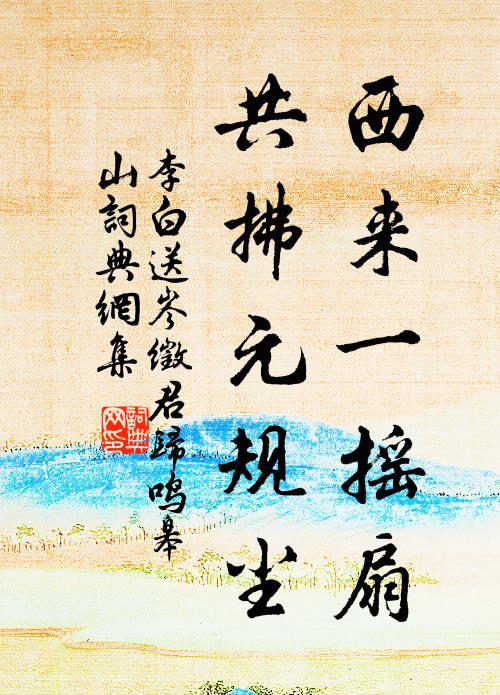 西来一摇扇
共拂元规尘
李白送岑徵君歸鸣皋
山詞典網集
詞典
网印